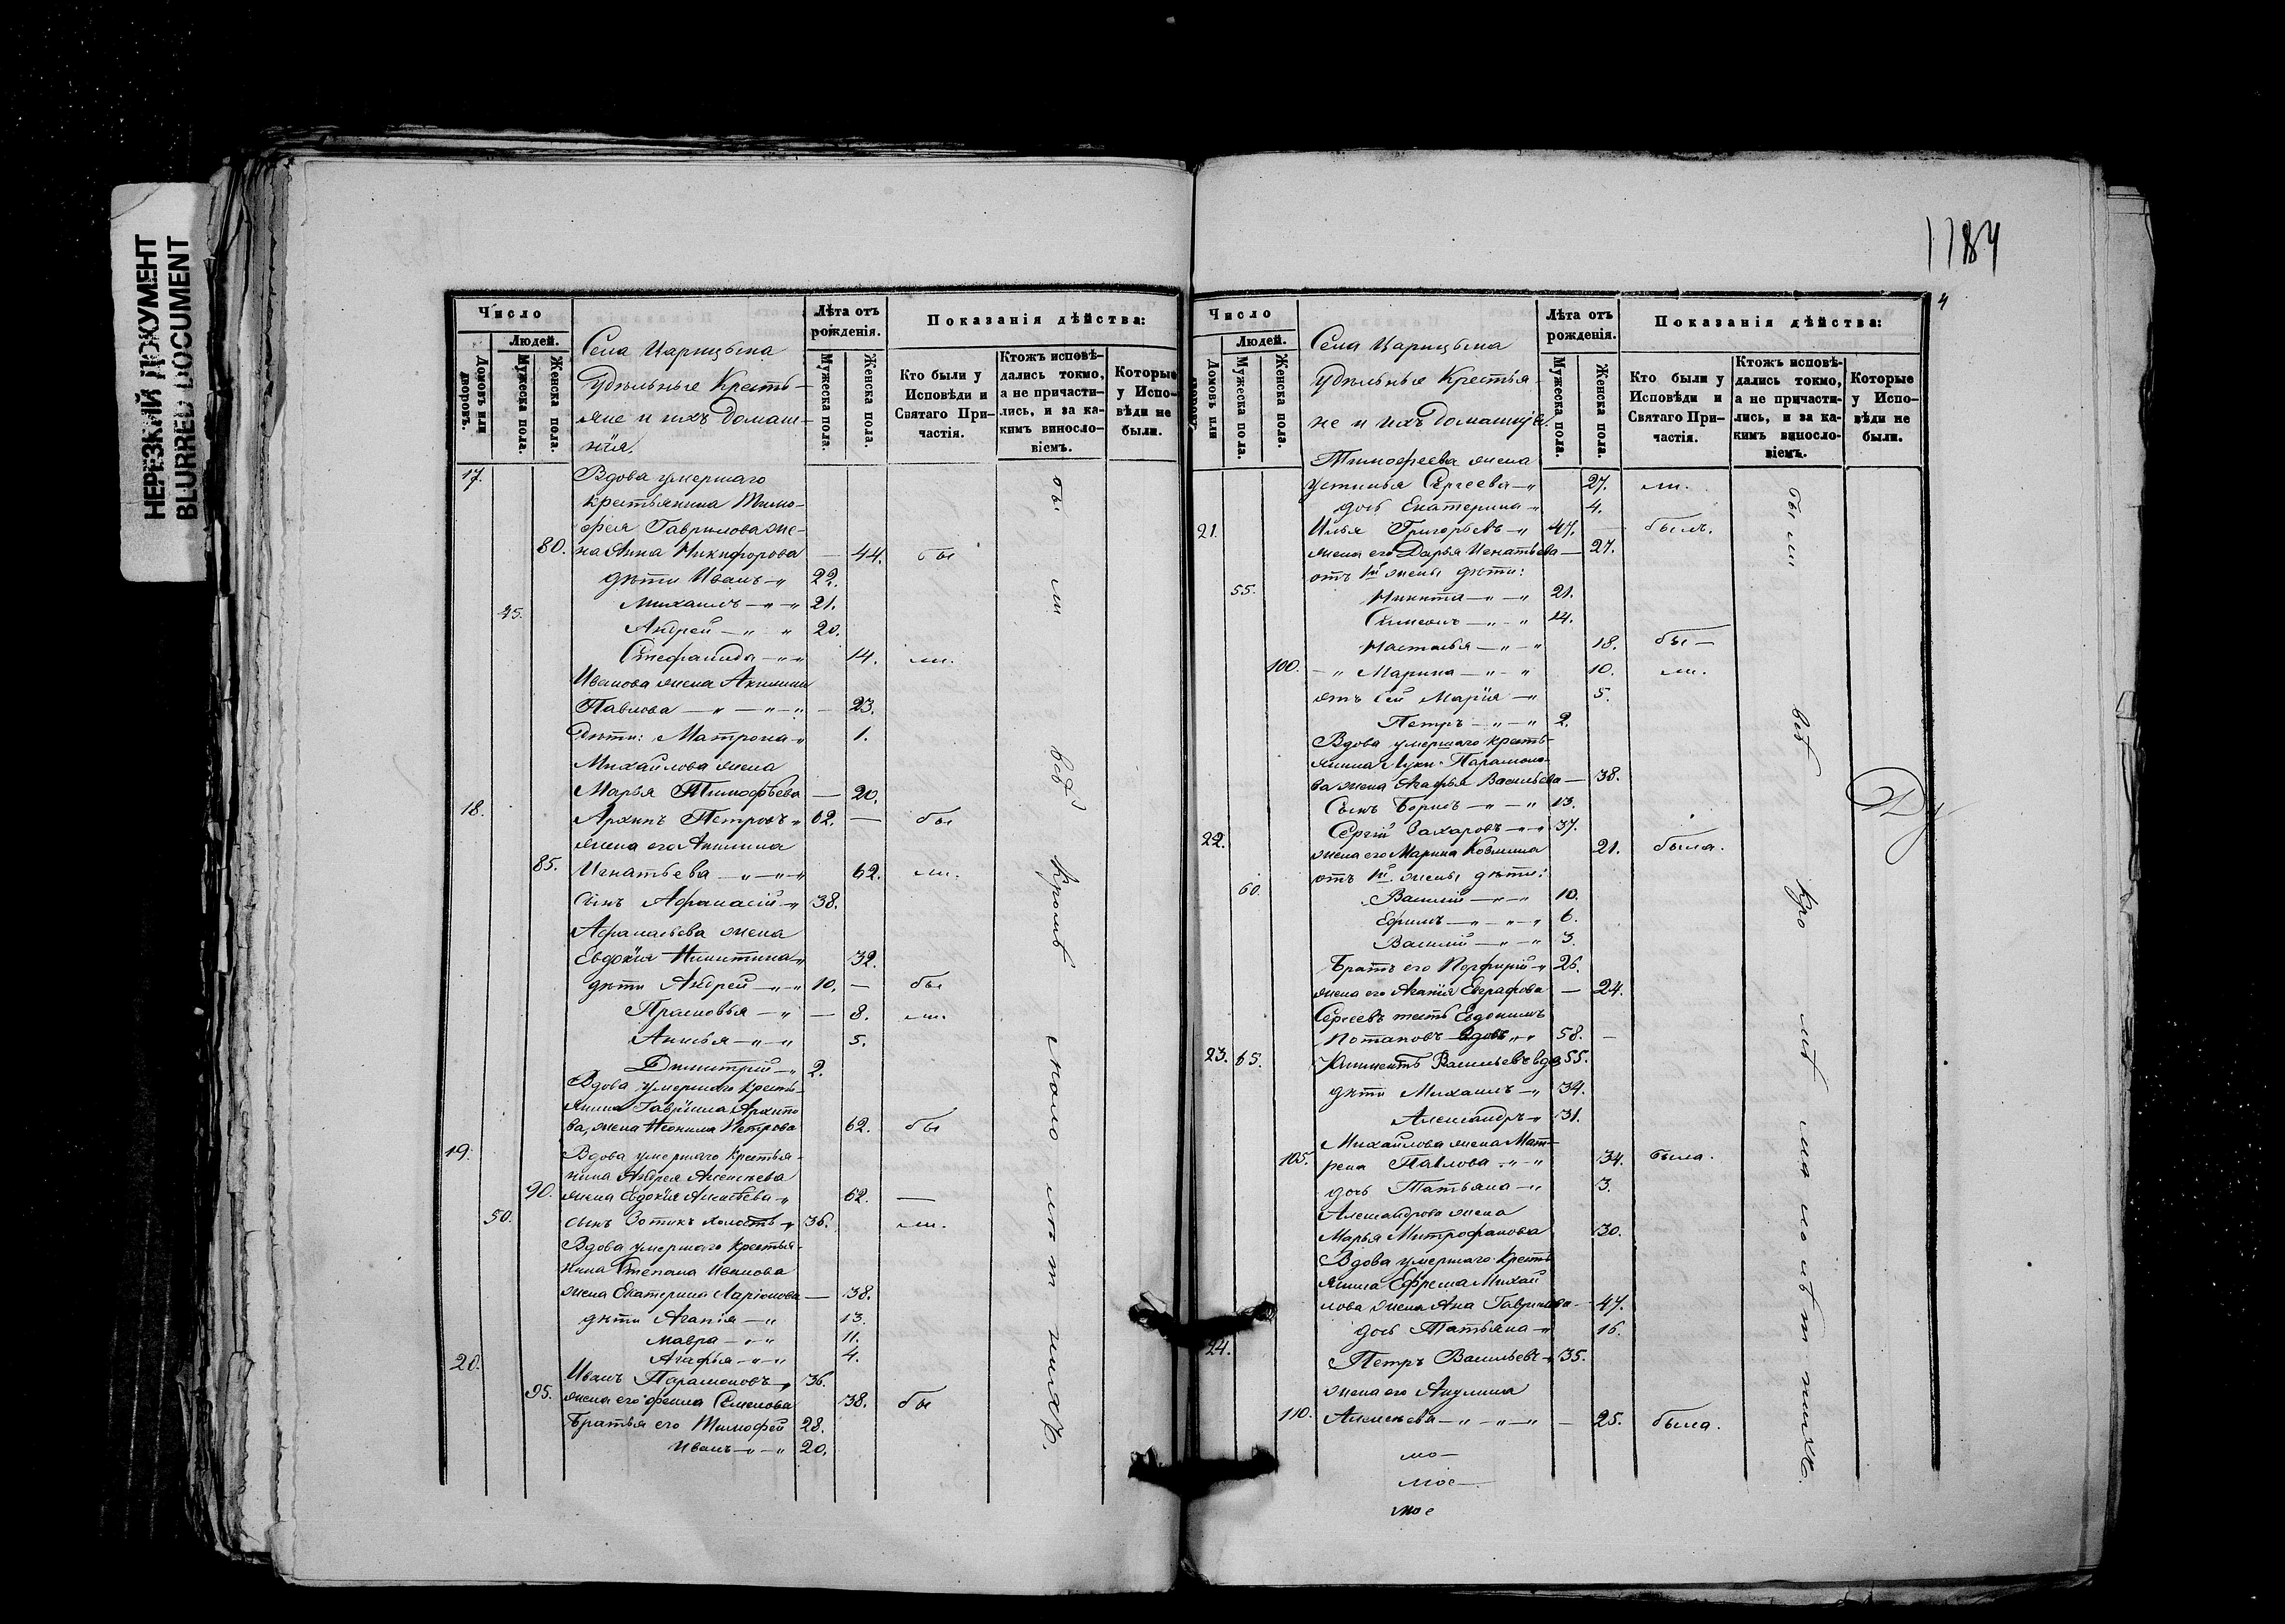 НЕРЕЗКИЙ ДОКУМЕНТ
BLURRED DOCUMENT
Число
Людей.
Домовъ или дворовъ.
Мужеска пола.
Женска пола.
Села Царицына
Удѣльные Кресть-
яне и ихъ домаш-
нія.
Лѣта отъ рожденія.
Мужеска пола.
Женска пола.
Показанія дѣйства:
Кто были у Исповѣди и Святаго При-частія.
Ктожъ исповѣ-дались токмо, а не причасти-лись, и за ка-кимъ виносло-віемъ.
Которые у Испо-вѣди не были.
17. Вдова умершаго
крестьянина Тимо-
фея Гаврилова же-
80. на Анна Никифорова — 44. бы
дѣти Иванъ 22.
Михаилъ 21.
45. Андрей 20.
Стефанида 14. ли.
Иванова жена Акилина
Павлова — 23.
Дѣти: Матрона 1.
Михайлова жена
Марья Тимофѣева — 20.
18. Архипъ Петровъ 62. — бы
жена его Акилина
85. Игнатьева 62. ли.
Сынъ Афанасій 38.
Афанасьева жена
Евдокія Никитина 32.
дѣти Андрей 10. — бы
Прасковья — 8. ли.
Анисья 5.
Димитрій 2.
Вдова умершаго кресть-
янина Гавріила Архипо
ва, жена Неонила Петрова 62. бы
19. Вдова умершаго крестья-
нина Андрея Алексѣева
90. жена Евдокія Алексѣева 62. —
50. сынъ Зотикъ холостъ 36. ли.
Вдова умершаго крестья-
нина Степана Иванова
жена Екатерина Ларіонова — 38.
дѣти Агапія 13.
Мавра 11.
Агафья 4.
20. Иванъ Парамоновъ 36.
95. жена его Фекла Семенова 38. бы
Братья его Тимофей 28.
Иванъ 20.
бы ли всѣ кромѣ малолѣтнихъ.
1184
4
Число
Людей.
Домовъ или
Мужеска пола.
Женска пола.
Села Царицына
Удѣльные Крестья-
не и ихъ домашніе.
Лѣта отъ рожденія.
Мужеска пола.
Женска пола.
Показанія дѣйства:
Кто были у Исповѣди и Святаго При-частія.
Ктожъ исповѣ-дались токмо, а не причасти-лись, и за ка-кимъ виносло-віемъ.
Которые у Испо-вѣди не были.
Тимофеева жена
Устинья Сергеева 27. ли.
дочь Екатерина 4.
21. Илья Григорьевъ 47. — былъ.
жена его Дарья Игнатьева — 27.
отъ 1й жены дѣти:
55. Никита 21.
Симеонъ 14.
Настасья 18. бы —
100. Марина 10. ли.
отъ сей Марія 5.
Петръ 2.
Вдова умершаго кресть-
янина Луки Парамоно-
ва жена Агафья Васильева — 38.
Сынъ Борисъ 13.
22. Сергій Захаровъ 37.
жена его Марина Козмина 21. была.
отъ 1й жены дѣти:
60. Василій 10.
Ефимъ 6.
Василій 3.
Братъ его Порфирій 26.
жена его Агапія Евграфова — 24.
Сергеевъ тесть Евдокимъ
Потаповъ вдовъ 58. —
23. 65. Климентъ Васильевъ вдов 55.
дѣти Михаилъ 34.
Александръ 31.
Михайлова жена Мат-
105. рена Павлова 34. была.
дочь Татьяна 3.
Александрова жена
Марья Митрофанова 30.
Вдова умершаго кресть
янина Ефрема Михай
лова жена Ана Гаврилова 47.
дочь Татьяна 16.
24. Петръ Васильевъ 35.
жена его Акулина
110. Алексѣева — 25. была.
мо —
мос —
мос
бы ли всѣ кро мѣ малолѣтнихъ.